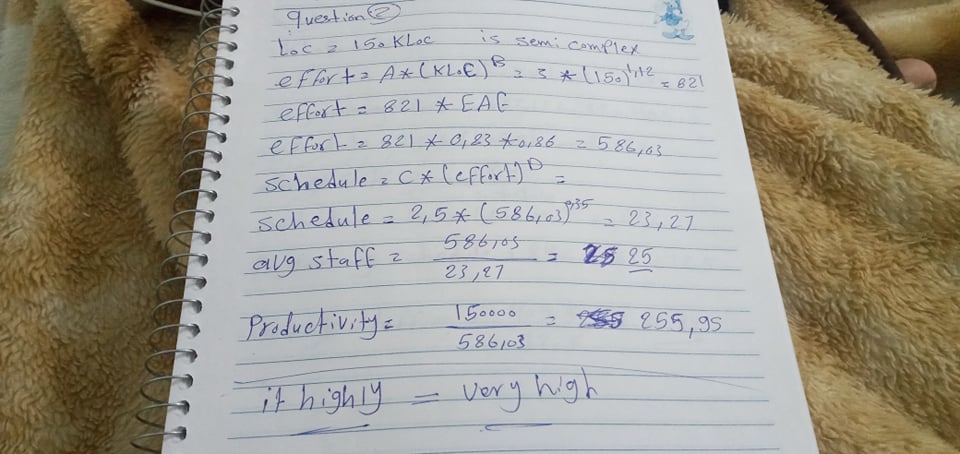 question 2
Loc = 150 KLoc is semi complex
effort = A * (KLoC)^B = 3 * (150)^1,12 = 821
effort = 821 * EAF
effort = 821 * 0,83 * 0,86 = 586,03
schedule = C * (effort)^D =
schedule = 2,5 * (586,03)^0,35 = 23,27
avg staff = 586,03 / 23,27 = 25
Productivity = 150000 / 586,03 = 255,95
it highly = very high